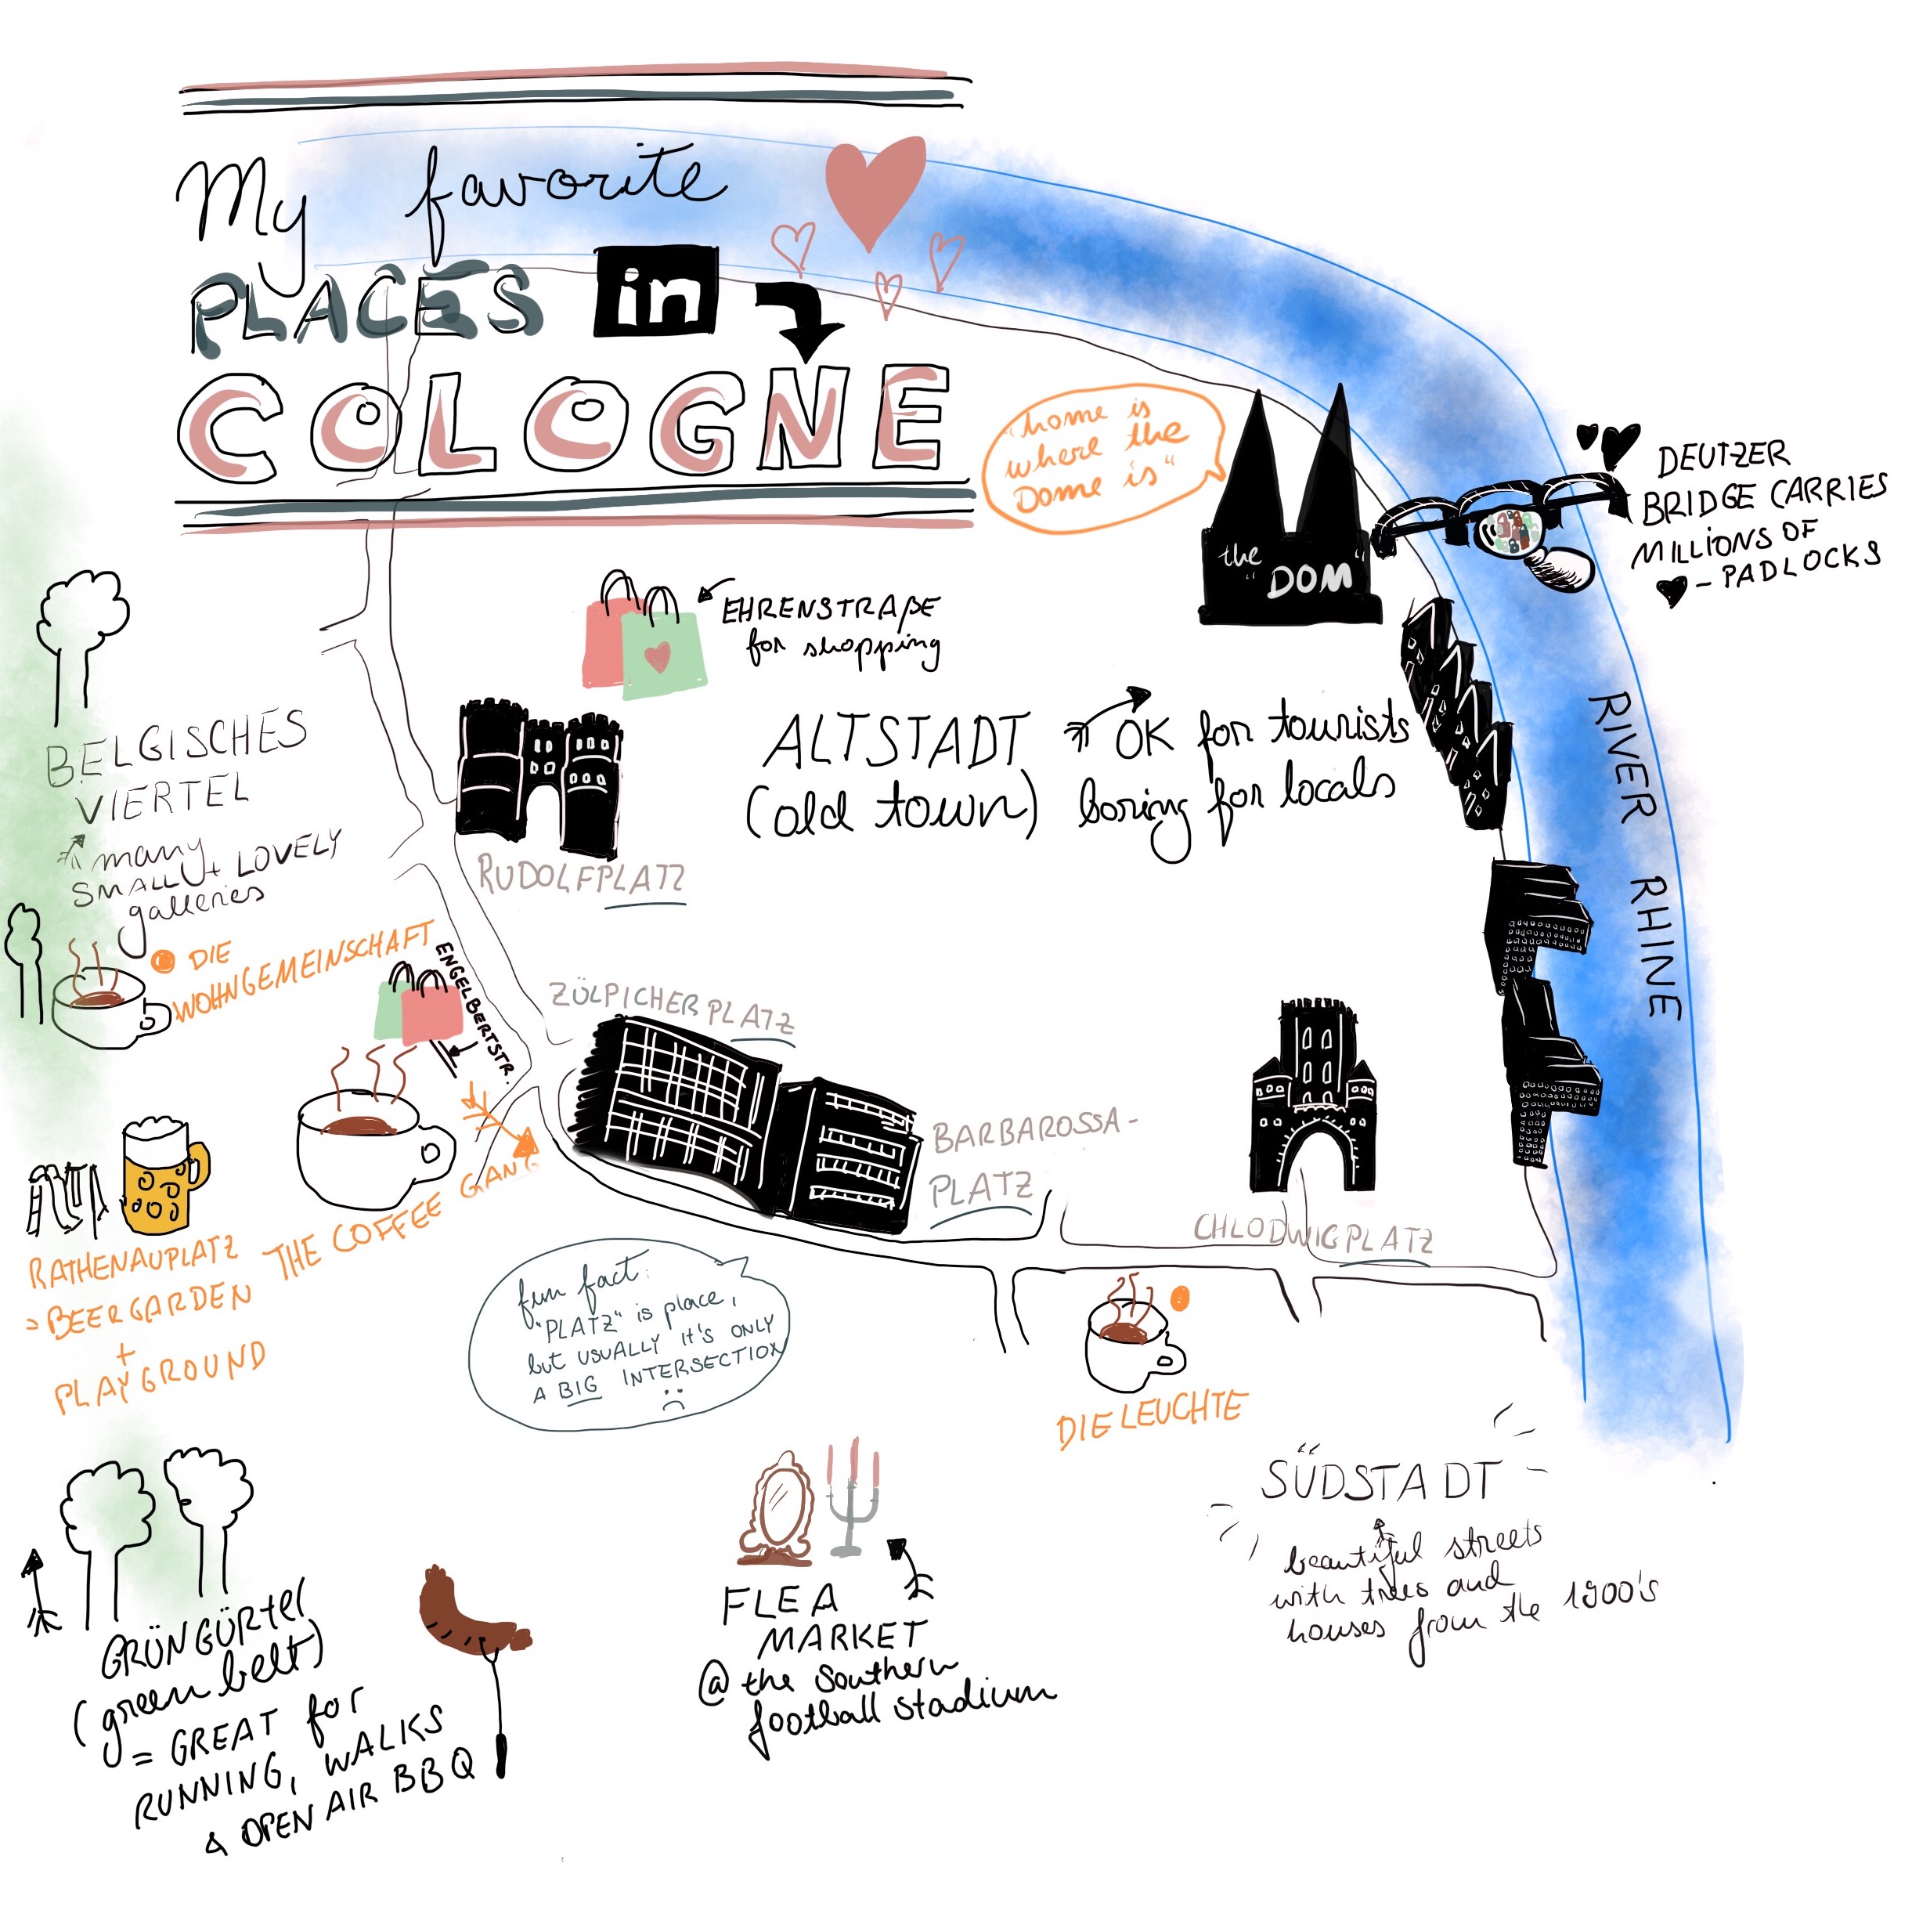 My favorite
PLACES in
COLOGNE
"home is
where the
Dome is"
the
"DOM"
DEUTZER
BRIDGE CARRIES
MILLIONS OF
♥-PADLOCKS
EHRENSTRAßE
for shopping
ALTSTADT
(old town)
OK for tourists
boring for locals
RIVER RHINE
BELGISCHES
VIERTEL
many
SMALL + LOVELY
galleries
RUDOLFPLATZ
DIE
WOHNGEMEINSCHAFT
ENGELBERTSTR.
ZÜLPICHERPLATZ
BARBAROSSA-
PLATZ
CHLODWIGPLATZ
THE COFFEE GANG
RATHENAUPLATZ
> BEERGARDEN
+
PLAYGROUND
fun fact:
"PLATZ" is place,
but USUALLY IT'S ONLY
A BIG INTERSECTION
:(
DIE LEUCHTE
SÜDSTADT
beautiful streets
with trees and
houses from the 1900's
FLEA
MARKET
@ the Southern
football stadium
GRÜNGÜRTEL
(green belt)
= GREAT for
RUNNING, WALKS
& OPEN AIR BBQ